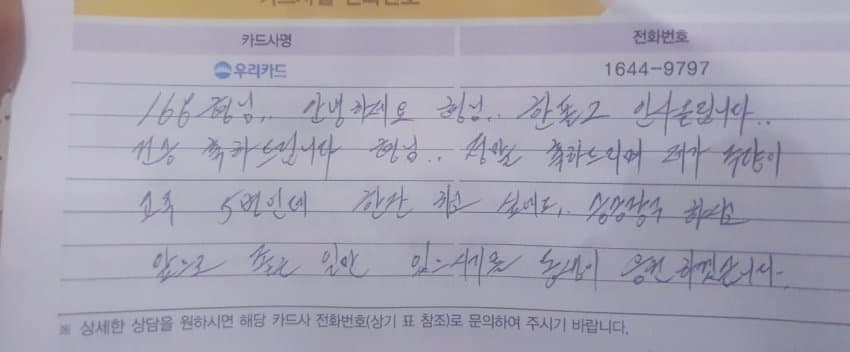 카드사별 전화번호
카드사명 전화번호
우리카드 1644-9797
168형님.. 안녕하세요 형님.. 인사올립니다..
축하드립니다 형님.. 정말 축하드리며 제가 주량이
소주 5병인데 한잔 하고
앞으로 좋은 일만 있으시기를 동생이 응원하겠습니다.
※ 상세한 상담을 원하시면 해당 카드사 전화번호(상기 표 참조)로 문의하여 주시기 바랍니다.